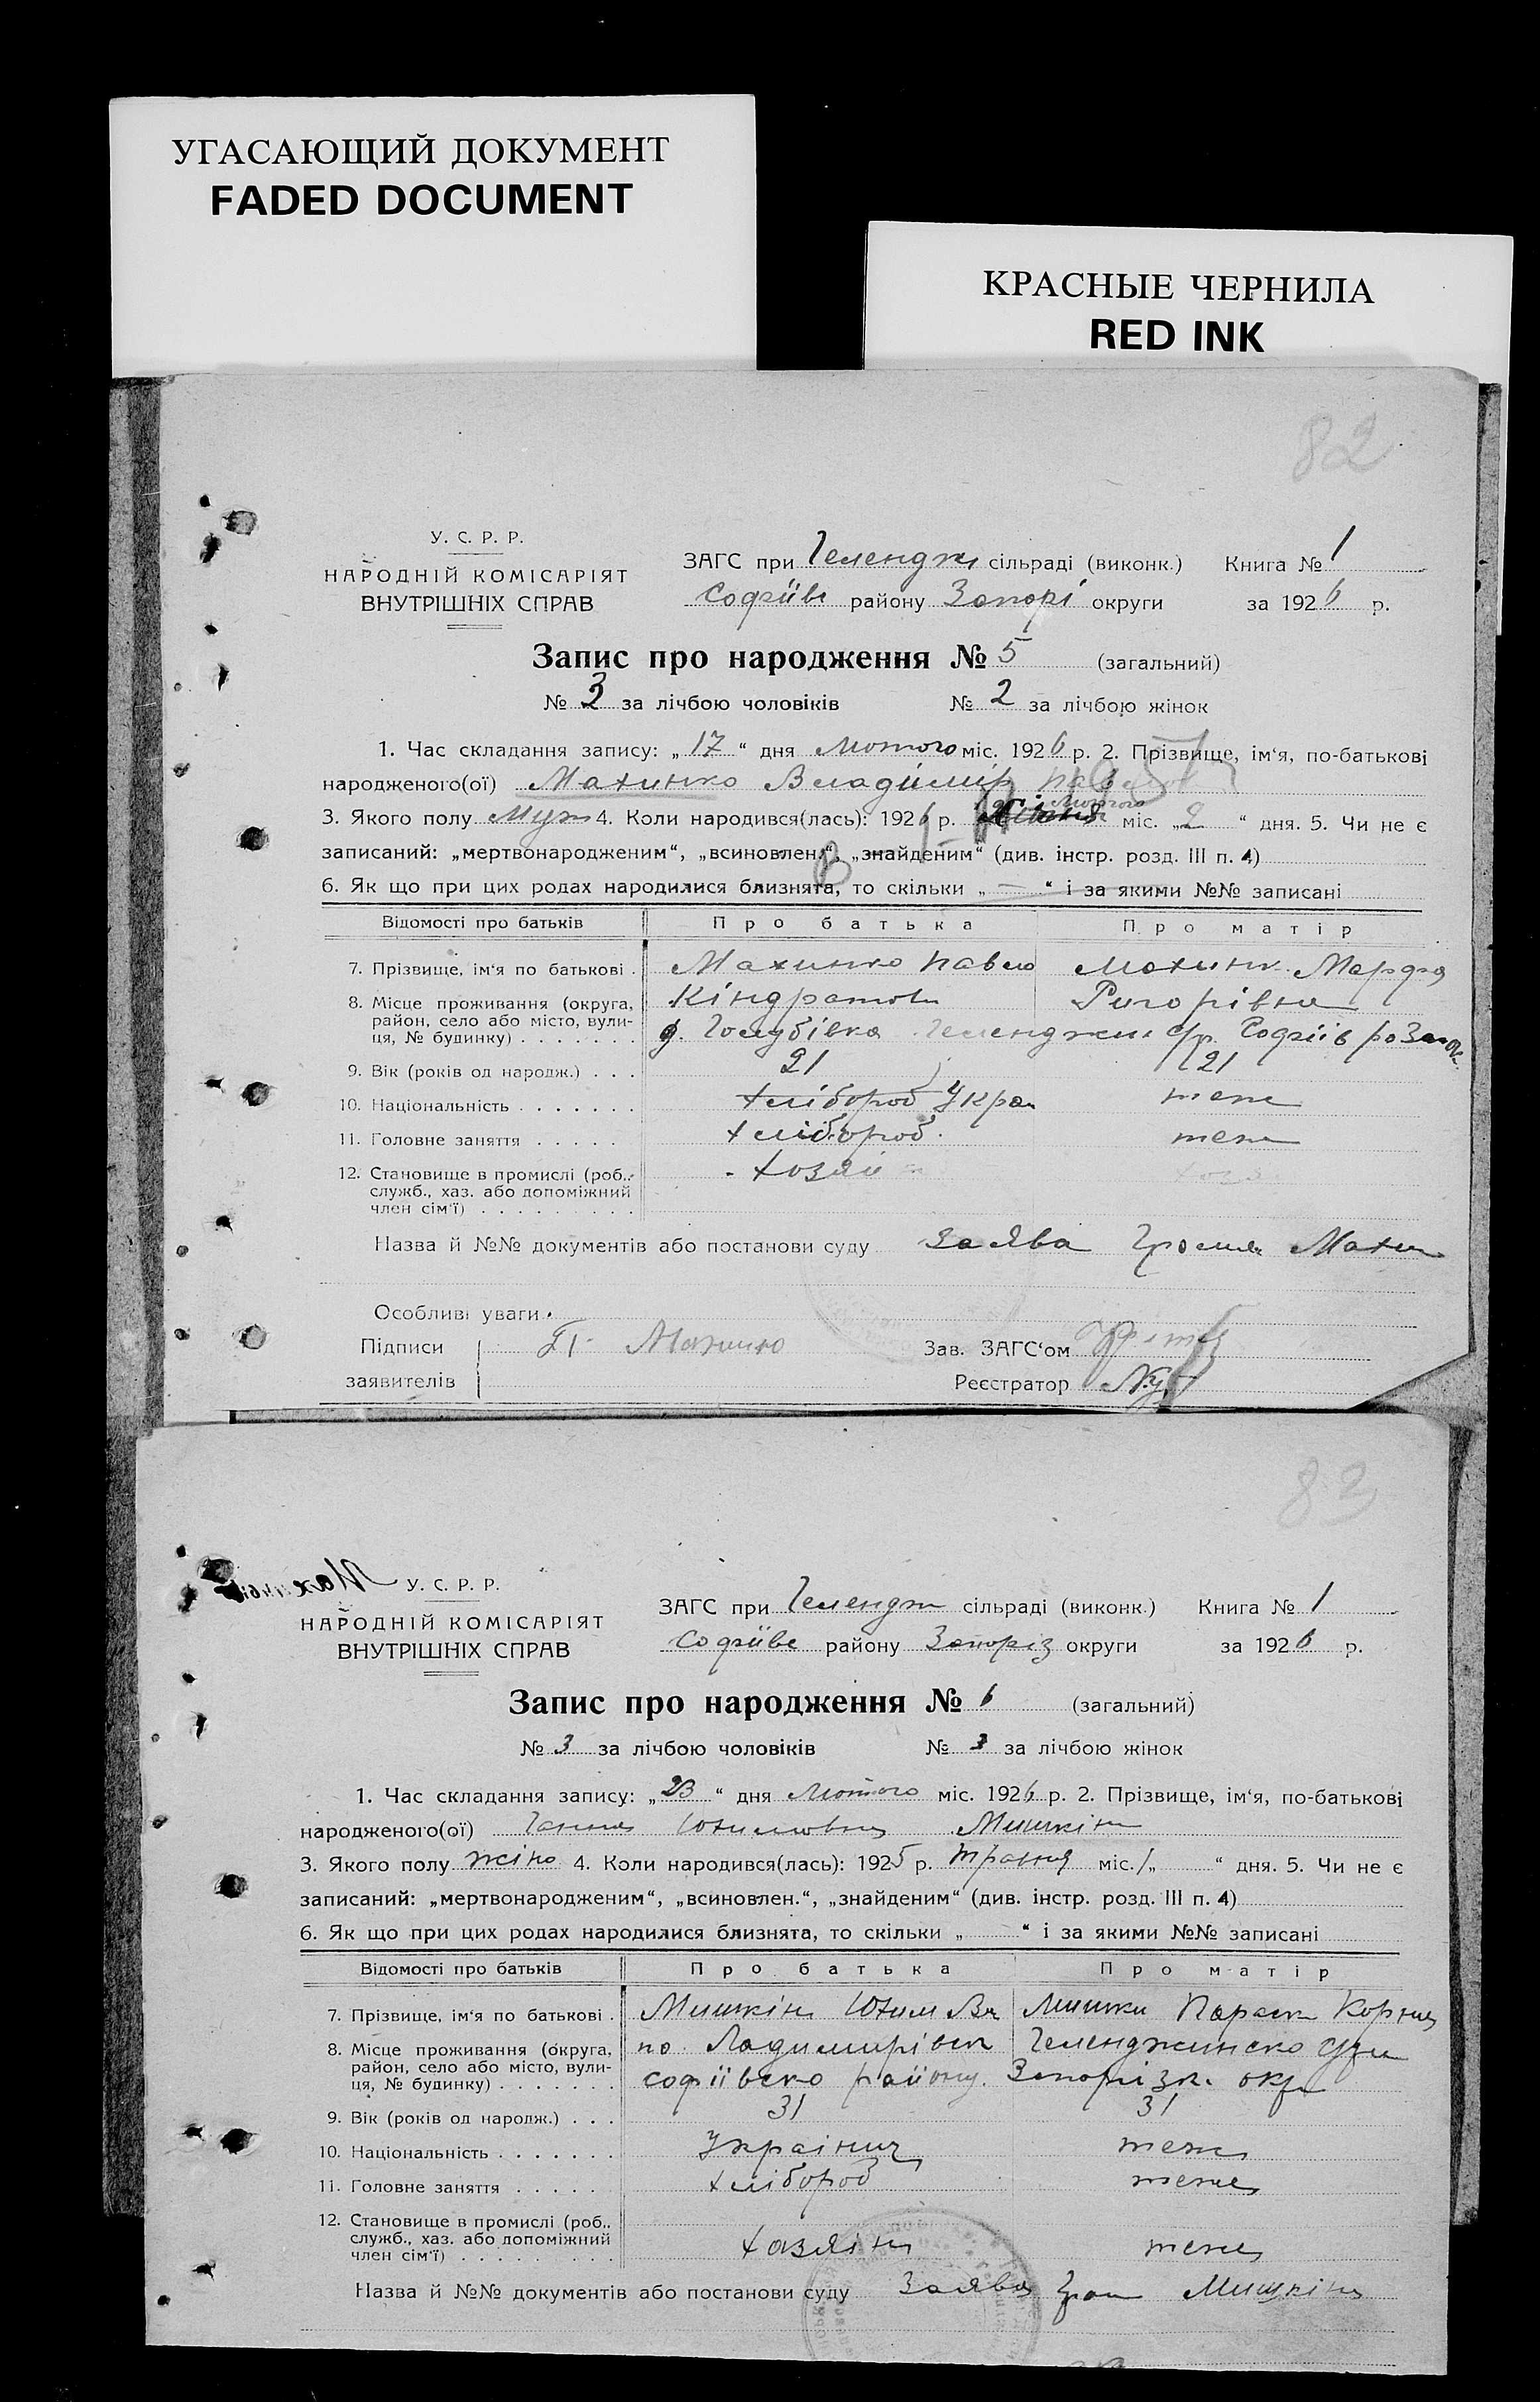 УГАСАЮЩИЙ ДОКУМЕНТ
FADED DOCUMENT
КРАСНЫЕ ЧЕРНИЛА
RED INK
82
У. С. Р. Р.
НАРОДНІЙ КОМІСАРІЯТ
ВНУТРІШНІХ СПРАВ
ЗАГС при Гелендж сільраді (виконк.) Книга № 1
Софіїв району Запорі округи за 1926 р.
Запис про народження № 5 (загальний)
№ 3 за лічбою чоловіків № 2 за лічбою жінок
1. Час складання запису: „ 17 “ дня Лютого міс. 1926 р. 2. Прізвище, ім‘я, по-батькові
народженого(ої) Махинко Владімір
3. Якого полу Муж 4. Коли народився(лась): 1926 р. Лютого міс. „ 2 “ дня. 5. Чи не є
записаний: „мертвонародженим“, „всиновлен.“, „знайденим“ (див. інстр. розд. III п. 4)
6. Як що при цих родах народилися близнята, то скільки „ — “ і за якими №№ записані
Відомості про батьків Про батька Про матір
7. Прізвище, ім‘я по батькові . Махинко Павло Махинк. Марфа
8. Місце проживання (округа, район, село або місто, вулиця, № будинку) Кіндратов Григорівна
Голубівка Геленджик с/р. Софіїв
9. Вік (років од народж.) . . . 21 21
10. Національність . . . . . . . хлібороб Укра теж
11. Головне заняття . . . . . хлібороб. теж
12. Становище в промислі (роб., служб., хаз. або допоміжний член сім‘ї) . . . . . . . . . хозяї
Назва й №№ документів або постанови суду заява Громя Махин
Особливі уваги.
Підписи Махинко Зав. ЗАГС‘ом
заявителів Реєстратор
83
У. С. Р. Р.
НАРОДНІЙ КОМІСАРІЯТ
ВНУТРІШНІХ СПРАВ
ЗАГС при Гелендж сільраді (виконк.) Книга № 1
Софіїв району Запоріз округи за 1926 р.
Запис про народження № 6 (загальний)
№ 3 за лічбою чоловіків № 3 за лічбою жінок
1. Час складання запису: „ 23 “ дня Лютого міс. 1926 р. 2. Прізвище, ім‘я, по-батькові
народженого(ої) Ганна Юхимовна Мишкін
3. Якого полу жіно 4. Коли народився(лась): 1925 р. Травня міс. 1 „ “ дня. 5. Чи не є
записаний: „мертвонародженим“, „всиновлен.“, „знайденим“ (див. інстр. розд. III п. 4)
6. Як що при цих родах народилися близнята, то скільки „ “ і за якими №№ записані
Відомості про батьків Про батька Про матір
7. Прізвище, ім‘я по батькові . Мишкін Юхим Мишки Параск Корния
8. Місце проживання (округа, район, село або місто, вулиця, № будинку) . . . . . . . Геленджинско
софіївско району. Запорізк. окр
9. Вік (років од народж.) . . . 31 31
10. Національність . . . . . . . Українец теж
11. Головне заняття . . . . . хлібороб теж
12. Становище в промислі (роб., служб., хаз. або допоміжний член сім‘ї) . . . . . . . . . хазяїн теж
Назва й №№ документів або постанови суду Заява Гром Мишкіна